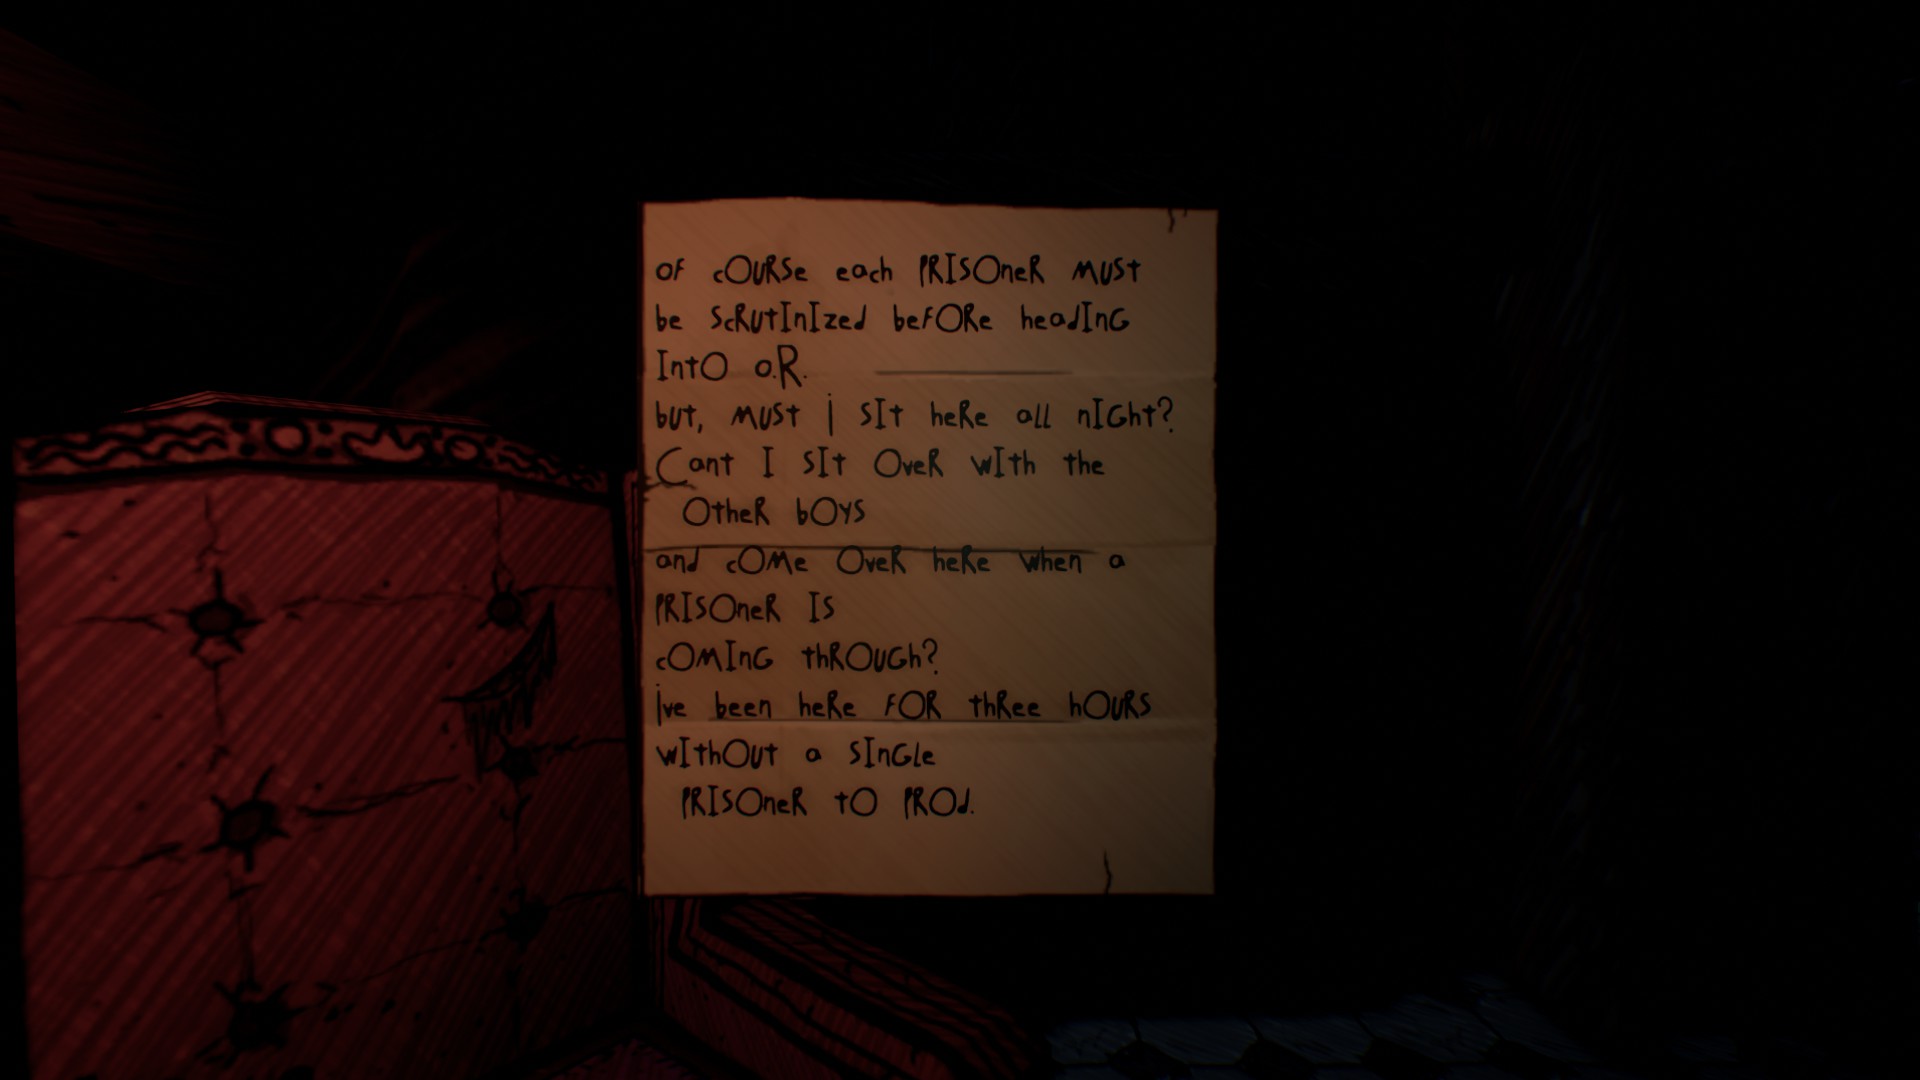 OF cOURSe each PRISOneR MUSt
be ScRUtInIzed beFORe headInG
IntO o.R.
but, MUSt i SIt heRe all nIGht?
Cant I SIt OveR wIth the
OtheR bOYS
and cOMe OveR heRe when a
PRISOneR IS
cOMInG thROUGh?
ive been heRe FOR thRee hOURS
wIthOUt a SInGle
PRISOneR tO PROd.